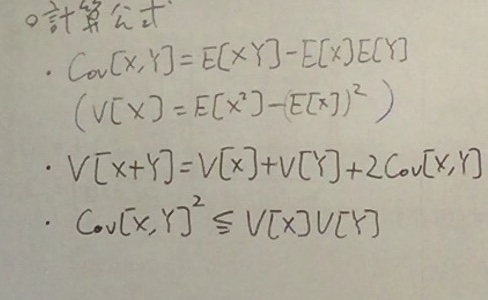 ○計算公式
・Cov[X,Y]=E[XY]-E[X]E[Y]
(V[X]=E[X²]-(E[X])²)
・V[X+Y]=V[X]+V[Y]+2Cov[X,Y]
・Cov[X,Y]²≦V[X]V[Y]